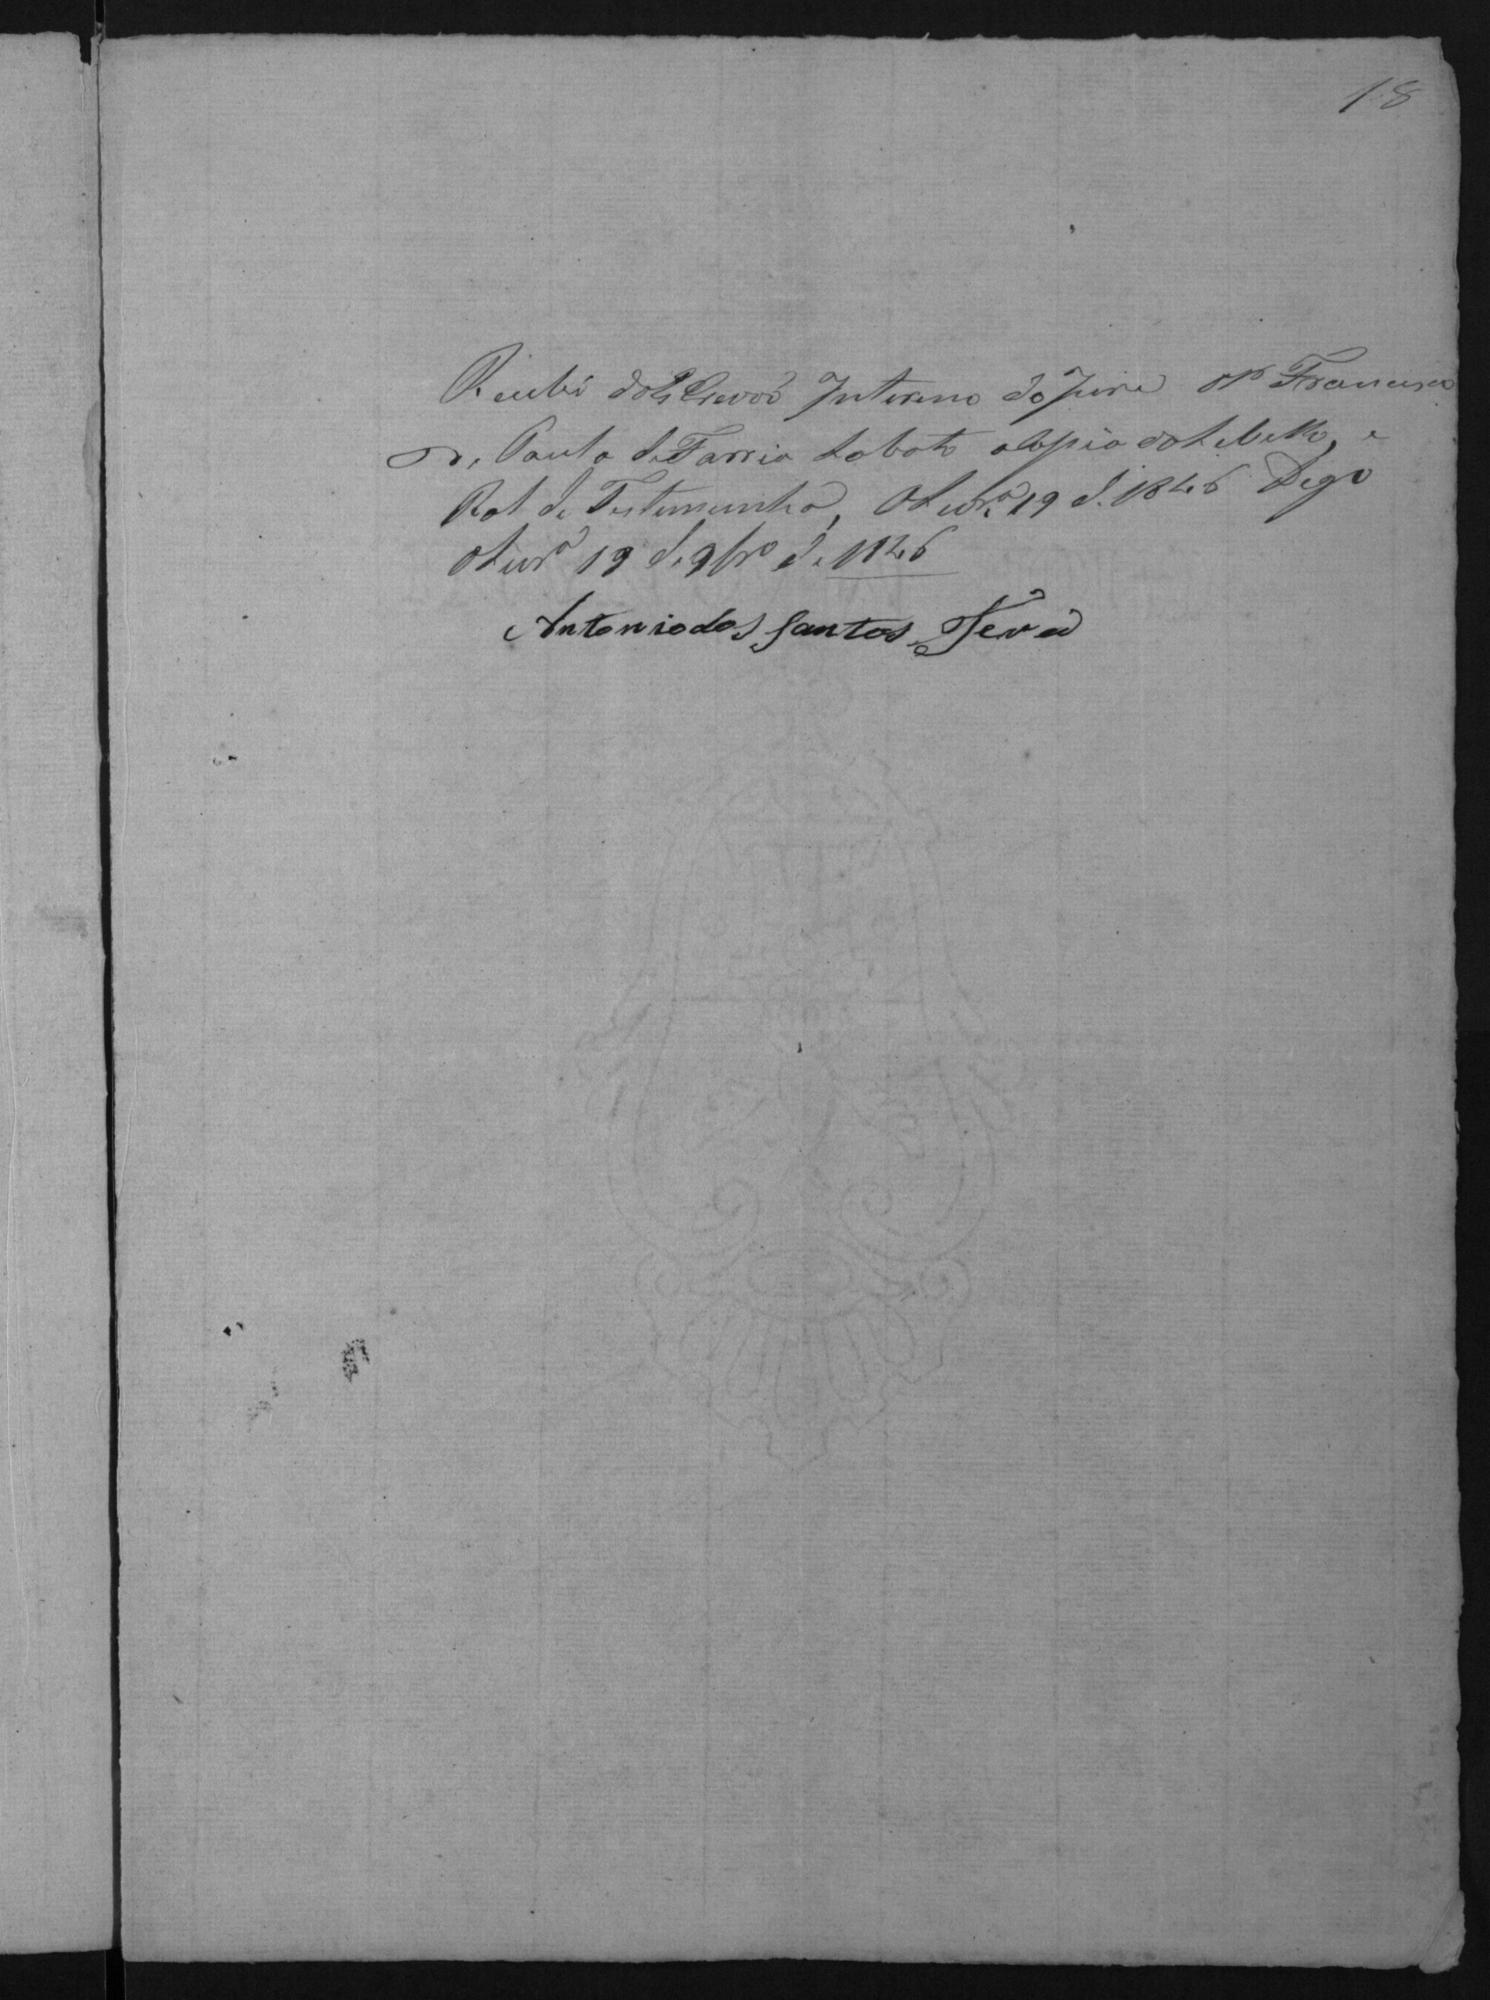 18
Recebi do Escrivaõ Interino do Jure o Sr Francisco
de Paula de Farria Lobato a Copia do Lebello, e
Rol de Testemunha, 19 de 1846 Digo
19 de 9bro de 1846
Antonio dos Santos